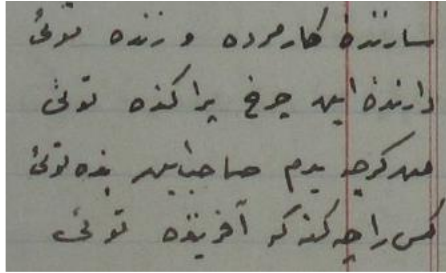 سازندهٔ کار مرده و زنده توئی
دارندهٔ این چرخ پراکنده توئی
من گرچه بدم صاحب این بنده توئی
کس را چه گنه که آفریننده توئی